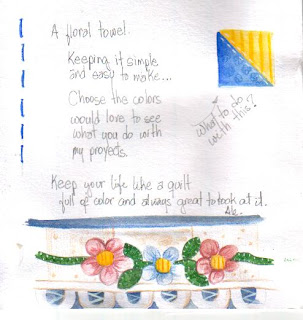 A floral towel.
Keeping it simple
and easy to make...
Choose the colors
would love to see
what you do with
my proyects.
What to do
with this?
Keep your life like a quilt
full of color and always great to look at it.
Ale.